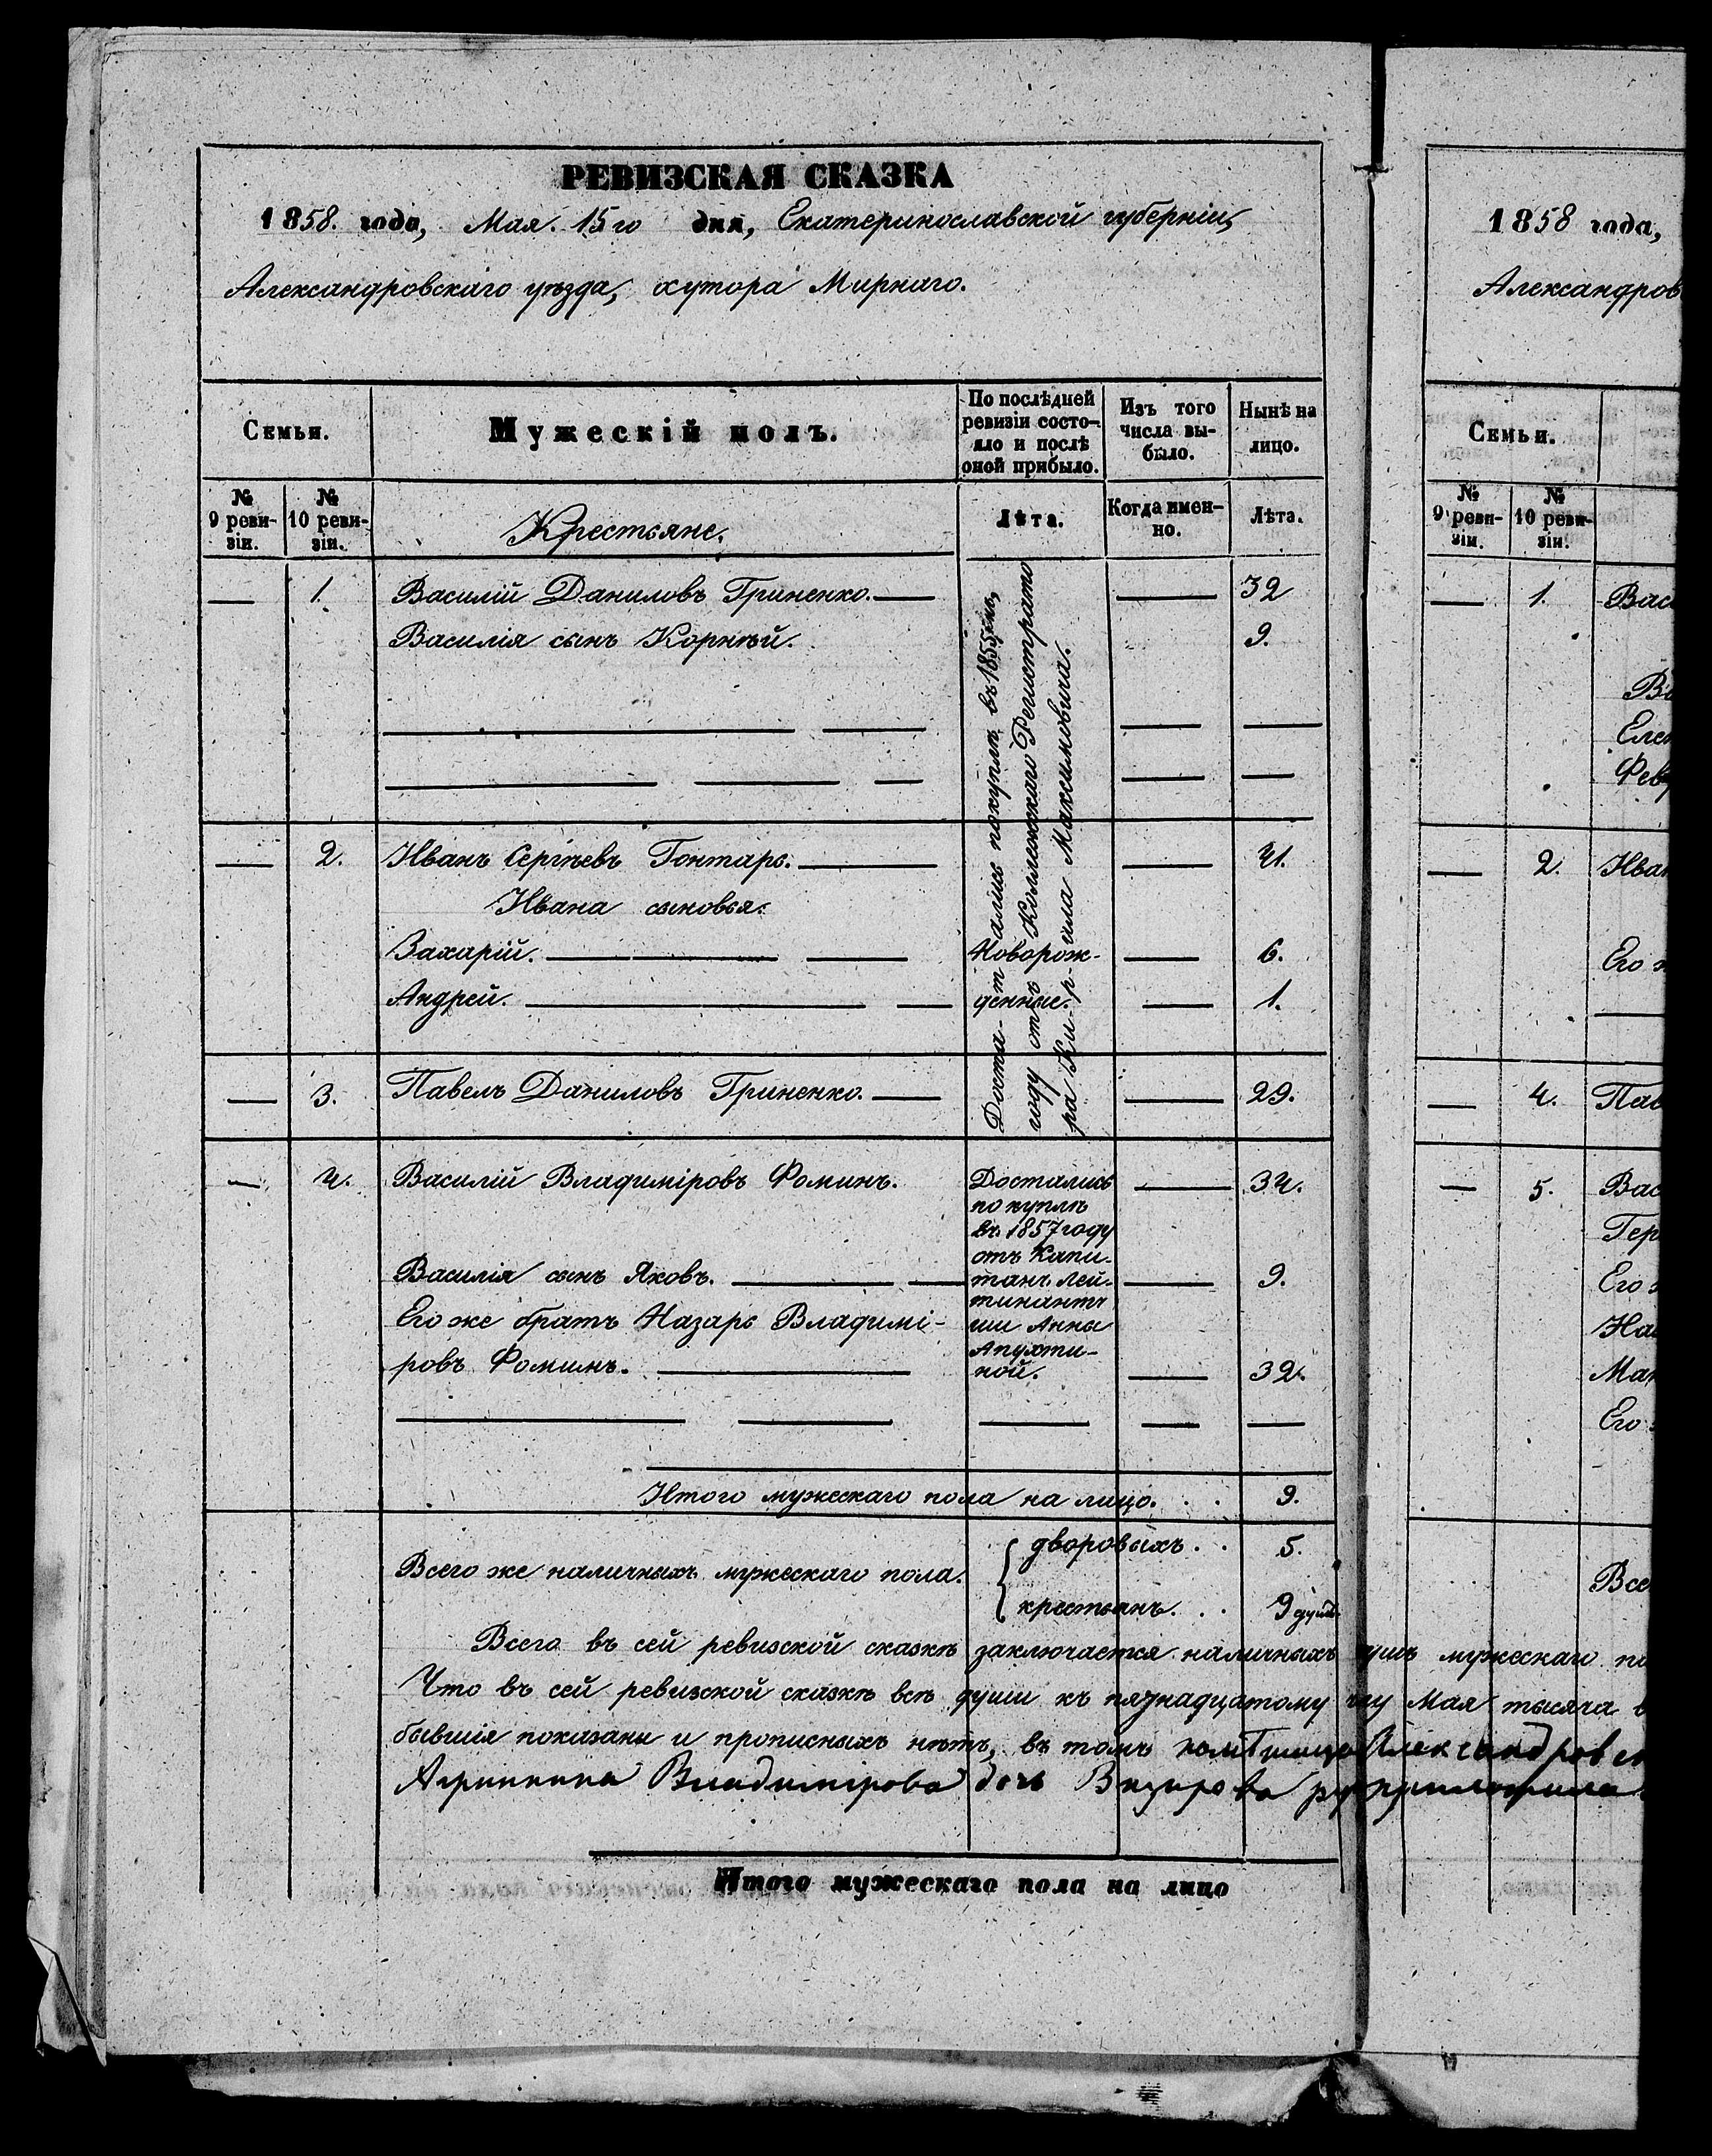 РЕВИЗСКАЯ СКАЗКА
1858. года, Мая. 15го дня, Екатеринославской губерніи,
Александровскаго уѣзда, хутора Мирнаго.
Семьи.
Мужескій полъ.
По послѣдней ревизіи состо-
яло и послѣ оной прибыло.
Изъ того числа вы-
было.
Нынѣ на лицо.
№ 9 реви-
зіи.
№ 10 реви-
зіи.
Крестьяне.
Лѣта.
Когда имен-
но.
Лѣта.
1. Василій Даниловъ Гриненко. 32
Василія сынъ Корнѣй. 9.
Доста- т ались покупкѣ въ 1855мъ,
году отъ Коллежскаго Регистрато
ра Ки- р- ила Максимовича.
2. Иванъ Сергѣевъ Гонтарь. 41.
Ивана сыновья:
Захарій. Новорож- 6.
Андрей. денные. 1.
3. Павелъ Даниловъ Гриненко. 29.
4. Василій Владиміровъ Фоминъ. 34.
Достались
по куплѣ
въ 1857 году
отъ Капи-
танъ Лей-
тинантъ
ши Анны
Апухти-
ной.
Василія сынъ Яковъ. 9.
Его же братъ Назаръ Владимі-
ровъ Фоминъ. 32.
Итого мужескаго пола на лицо. . . 9.
Всего же наличныхъ мужескаго пола.
дворовыхъ . . 5.
крестьянъ. . . 9 душъ.
Всего въ сей ревизской сказкѣ заключается наличныхъ душъ мужескаго
Что въ сей ревизской сказкѣ всѣ души къ пятнадцатому Мая тысяча
бывшія показаны и прописныхъ нѣтъ, въ томъ
Агрипина Владимірова дочь
Итого мужескаго пола на лицо
1858 года,
Александров
Семьи.
№ 9 реви-
зіи.
№ 10 реви-
зіи.
1. Вас
Елен
Февр
2. Иван
Его
4. Пав
5. Вас
Гер
Его
На
Мат
Его
Все